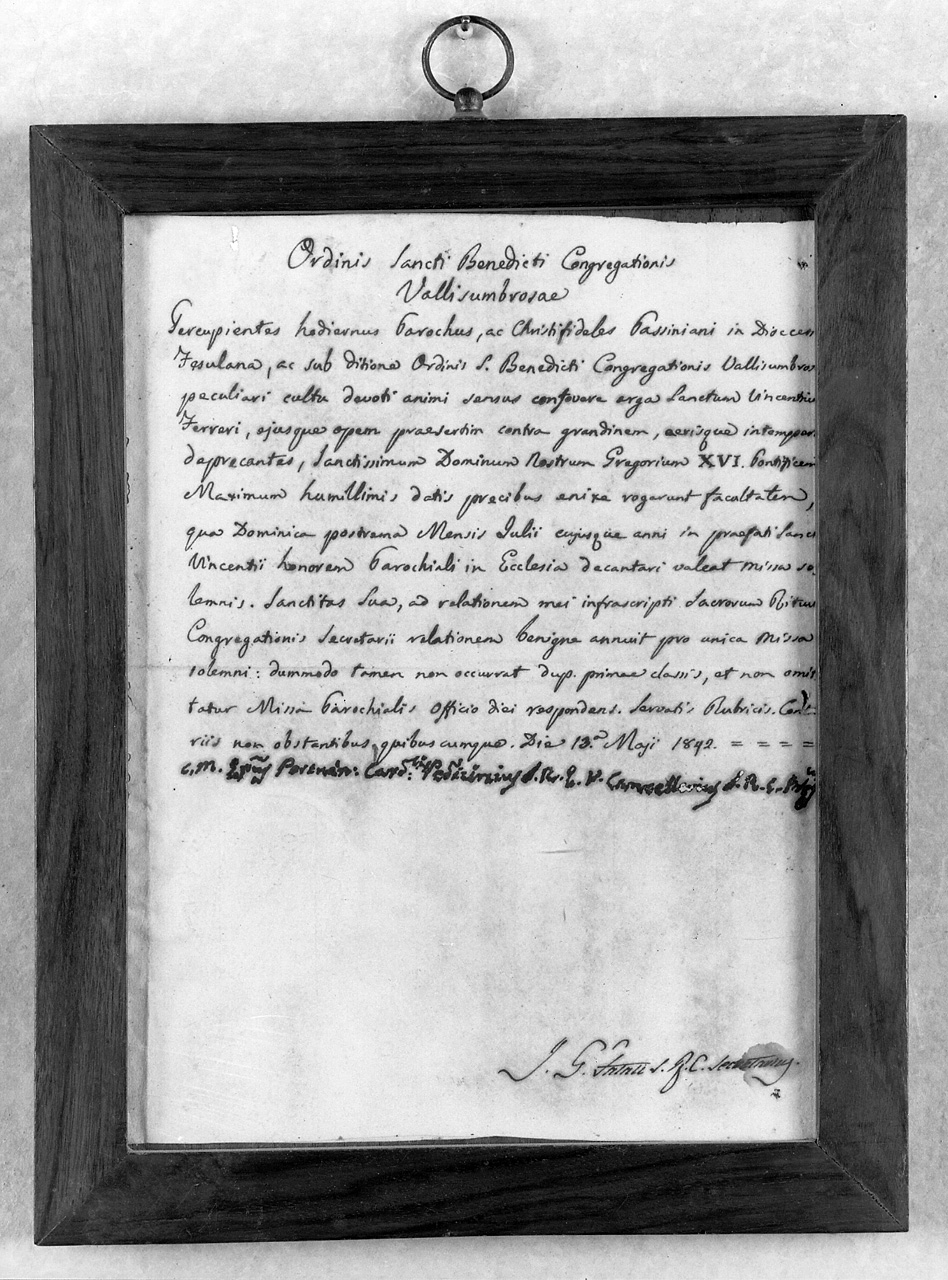 Ordinis Sancti Benedicti Congregationis
Vallisumbrosae
Percupientes hodiernus Parochus, ac Christifideles Passiniani in Dioecesi
Fesulana, ac sub ditione Ordinis S. Benedicti Congregationis Vallisumbros
peculiari cultu devoti animi sensus confovere erga Sanctum Vincentiu
Ferreri, ejusque opem praesertim contra grandinem, aerisque intemper
deprecantes, Sanctissimum Dominum Nostrum Gregorium XVI. Pontificem
Maximum humillimis datis precibus enixe rogarunt facultatem,
qua Dominica postrema Mensis Julii cujusque anni in praefati Sancti
Vincentii honorem Parochiali in Ecclesia decantari valeat missa so
lemnis. Sanctitas Sua, ad relationem mei infrascripti Sacrorum Rituu
Congregationis Secretarii relationem benigne annuit pro unica Missa
solemni: dummodo tamen non occurrat dup. primae classis, et non omit
tatur Missa Parochialis Officio diei respondens. Servatis Rubricis. Contr
riis non obstantibus quibuscumque. Die 13.a Maji 1842. = = = =
C. M. Portuen: Card. S. R. E. V. Cancellarius S. R. C.
J. G. Fatati S. R. C. Secretarius.